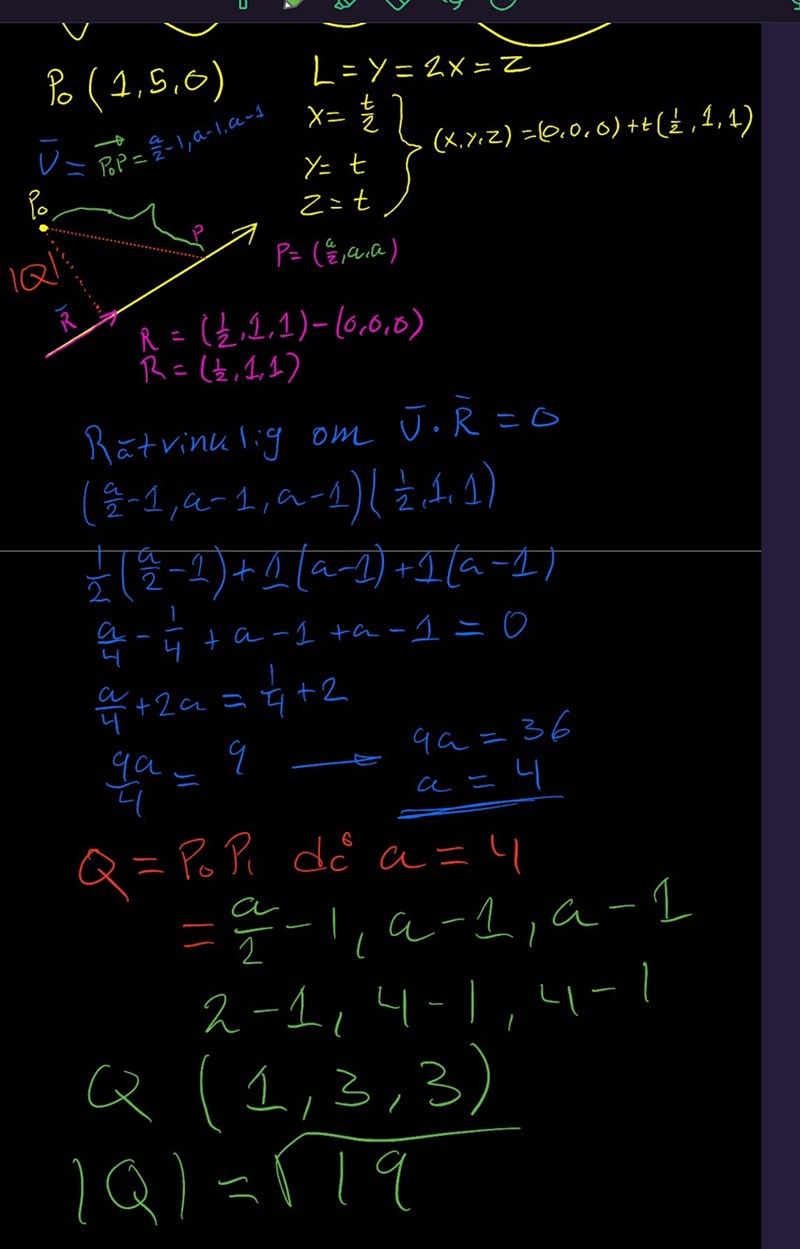 P₀ (1,5,0)
L = y = 2x = z
x = t/2
y = t
z = t
(x,y,z) = (0,0,0) + t(1/2, 1, 1)
Ū = P₀P = a/2-1, a-1, a-1
P₀
P
|Q|
R̄
P = (a/2, a, a)
R = (1/2, 1, 1) - (0,0,0)
R = (1/2, 1, 1)
Rätvinklig om Ū · R̄ = 0
(a/2 - 1, a - 1, a - 1)(1/2, 1, 1)
1/2(a/2 - 1) + 1(a - 1) + 1(a - 1)
a/4 - 1/4 + a - 1 + a - 1 = 0
a/4 + 2a = 1/4 + 2
9a/4 = 9 → 9a = 36
a = 4
Q = P₀P₁ då a = 4
= a/2 - 1, a - 1, a - 1
2 - 1, 4 - 1, 4 - 1
Q (1, 3, 3)
|Q| = √19